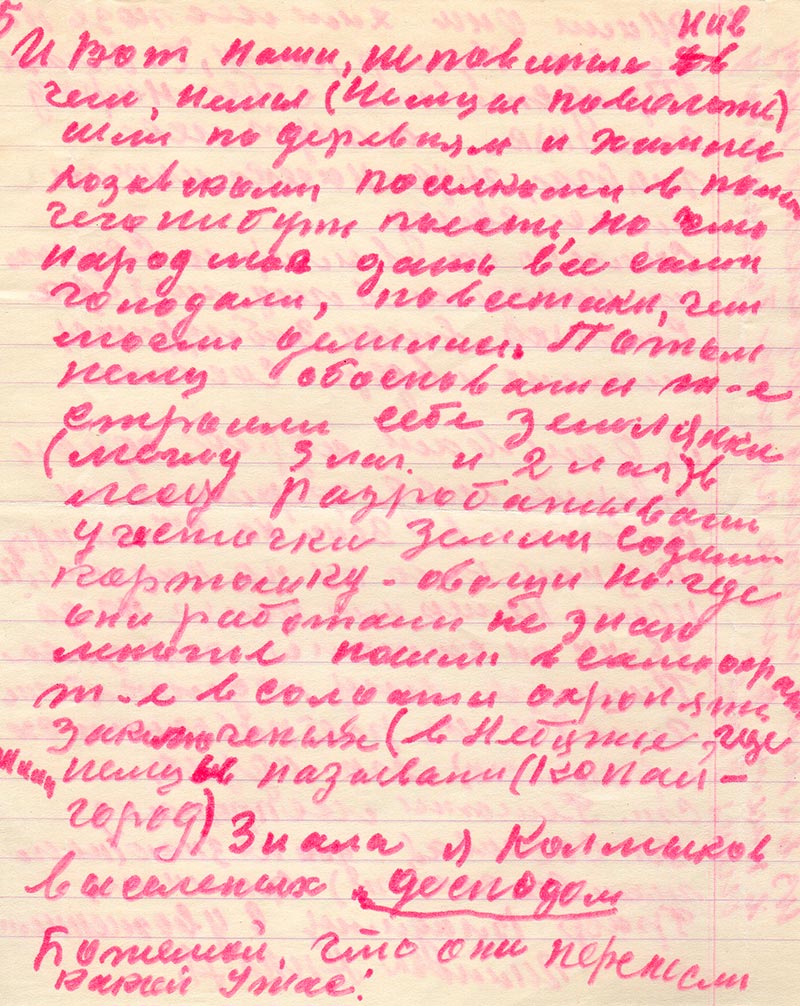 5
И вот наши,
чем, немы (Немцы поволожя)
шли по деревням и хими
лозавскими поселками в поис
чего нибудь поести, но что
народ мог дать все сами
голодали, повсетаки, чем
могли делились. Потом
немц обосновались т-е
строили себе землянки
(могилу 3 маг. и 2 мая) в
лесу разробатывали
участочки земли содили
картошку - овощи но где
они работали не знаю
многие пошли в самоохрану
т-е в солдаты охронять
заключеных (в Небдже, где
немцы называли (Копай-
город) Знала я Колмыков
выселеных, господом
Божемой, что они перенесли
какой Ужас!